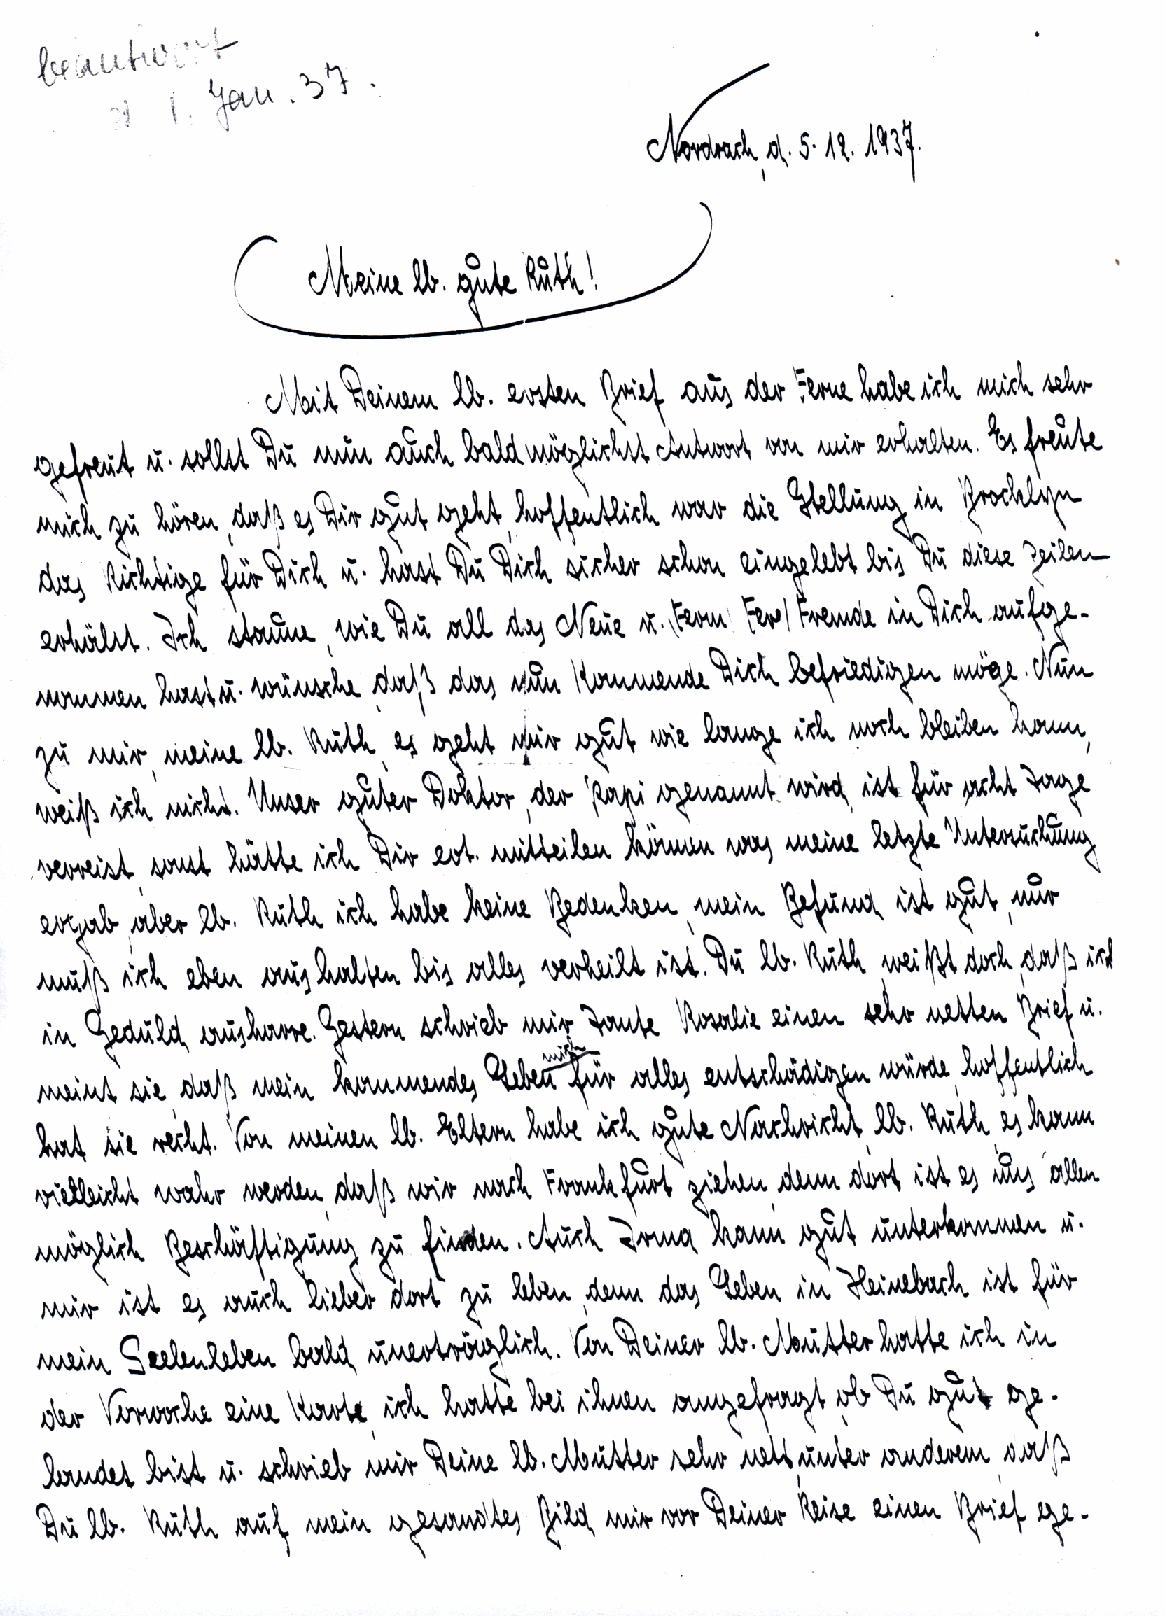 beantwort
d 1. Jan. 37.
Nordrach, d. 5. 12. 1937.
Meine lb. gute Ruth!
Mit Deinem lb. ersten Brief aus der Ferne habe ich mich sehr
gefreut u. sollst Du nun auch baldmöglichst Antwort von mir erhalten. Es freute
mich zu hören, daß es Dir gut geht, hoffentlich war die Stellung in Brocklyn
das Richtige für Dich u. hast Du Dich sicher schon eingelebt bis Du diese Zeilen
erhälst. Ich staune, wie Du all das Neue u. (Fern (Fer) Fremde in Dich aufge-
nommen hast u. wünsche, daß das nun Kommende Dich befriedigen möge. Nun
zu mir, meine lb. Ruth, es geht mir gut wie lange ich noch bleiben kann,
weiß ich nicht. Unser guter Doktor, der Papi genannt wird, ist für acht Tage
verreist, sonst hätte ich Dir evt. mitteilen können was meine letzte Untersuchung
ergab, aber lb. Ruth ich habe keine Bedenken, mein Befund ist gut, nur
muß ich eben aushalten bis alles verheilt ist. Du lb. Ruth, weißt doch, daß ich
in Geduld ausharre. Gestern schrieb mir Tante Rosalie einen sehr netten Brief u.
meint sie, daß mein kommendes Leben mich für alles entschädigen würde, hoffentlich
hat sie recht. Von meinen lb. Eltern habe ich gute Nachricht lb. Ruth, es kann
vielleicht wahr werden, daß wir nach Frankfurt ziehen, denn dort ist es uns allen
möglich Beschäftigung zu finden. Auch Irma kann gut unterkommen u.
mir ist es auch lieber dort zu leben, denn das Leben in Heinebach ist für
mein Seelenleben bald unerträglich. Von Deiner lb. Mutter hatte ich in
der Vorwoche eine Karte, ich hatte bei ihnen angefragt, ob Du gut ge-
landet bist u. schrieb mir Deine lb. Mutter sehr nett, unter anderem, daß
Du lb. Ruth auf mein gesandtes Bild mir vor Deiner Reise einen Brief ge-